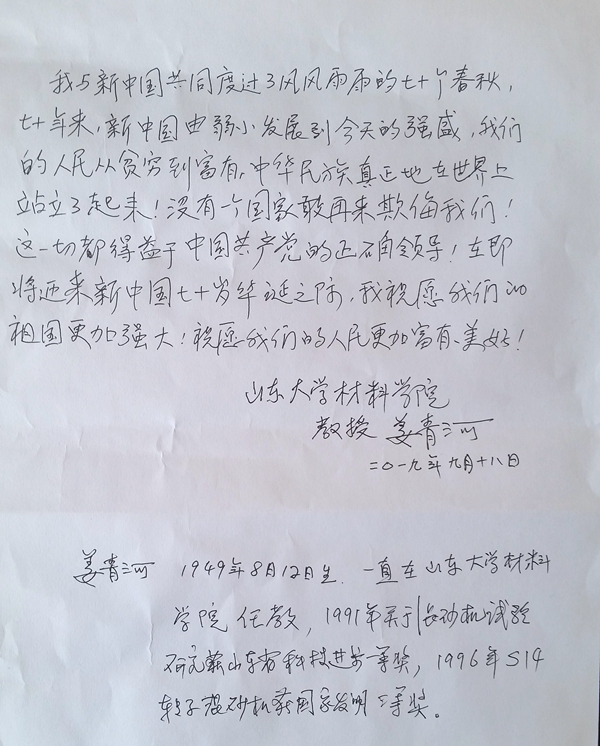 我与新中国共同度过了风风雨雨的七十个春秋，
七十年来，新中国由弱小发展到今天的强盛，我们
的人民从贫穷到富有，中华民族真正地在世界上
站立了起来！没有一个国家敢再来欺侮我们！
这一切都得益于中国共产党的正确领导！在即
将迎来新中国七十岁华诞之际，我祝愿我们的
祖国更加强大！祝愿我们的人民更加富有、美好！
山东大学材料学院
教授 姜青河
二0一九年九月十八日
姜青河 1949年8月12日生. 一直在山东大学材料
学院任教，1991年关于 砂机试验
研究获山东省科技进步一等奖，1996年S14
转子混砂机获国家发明三等奖。